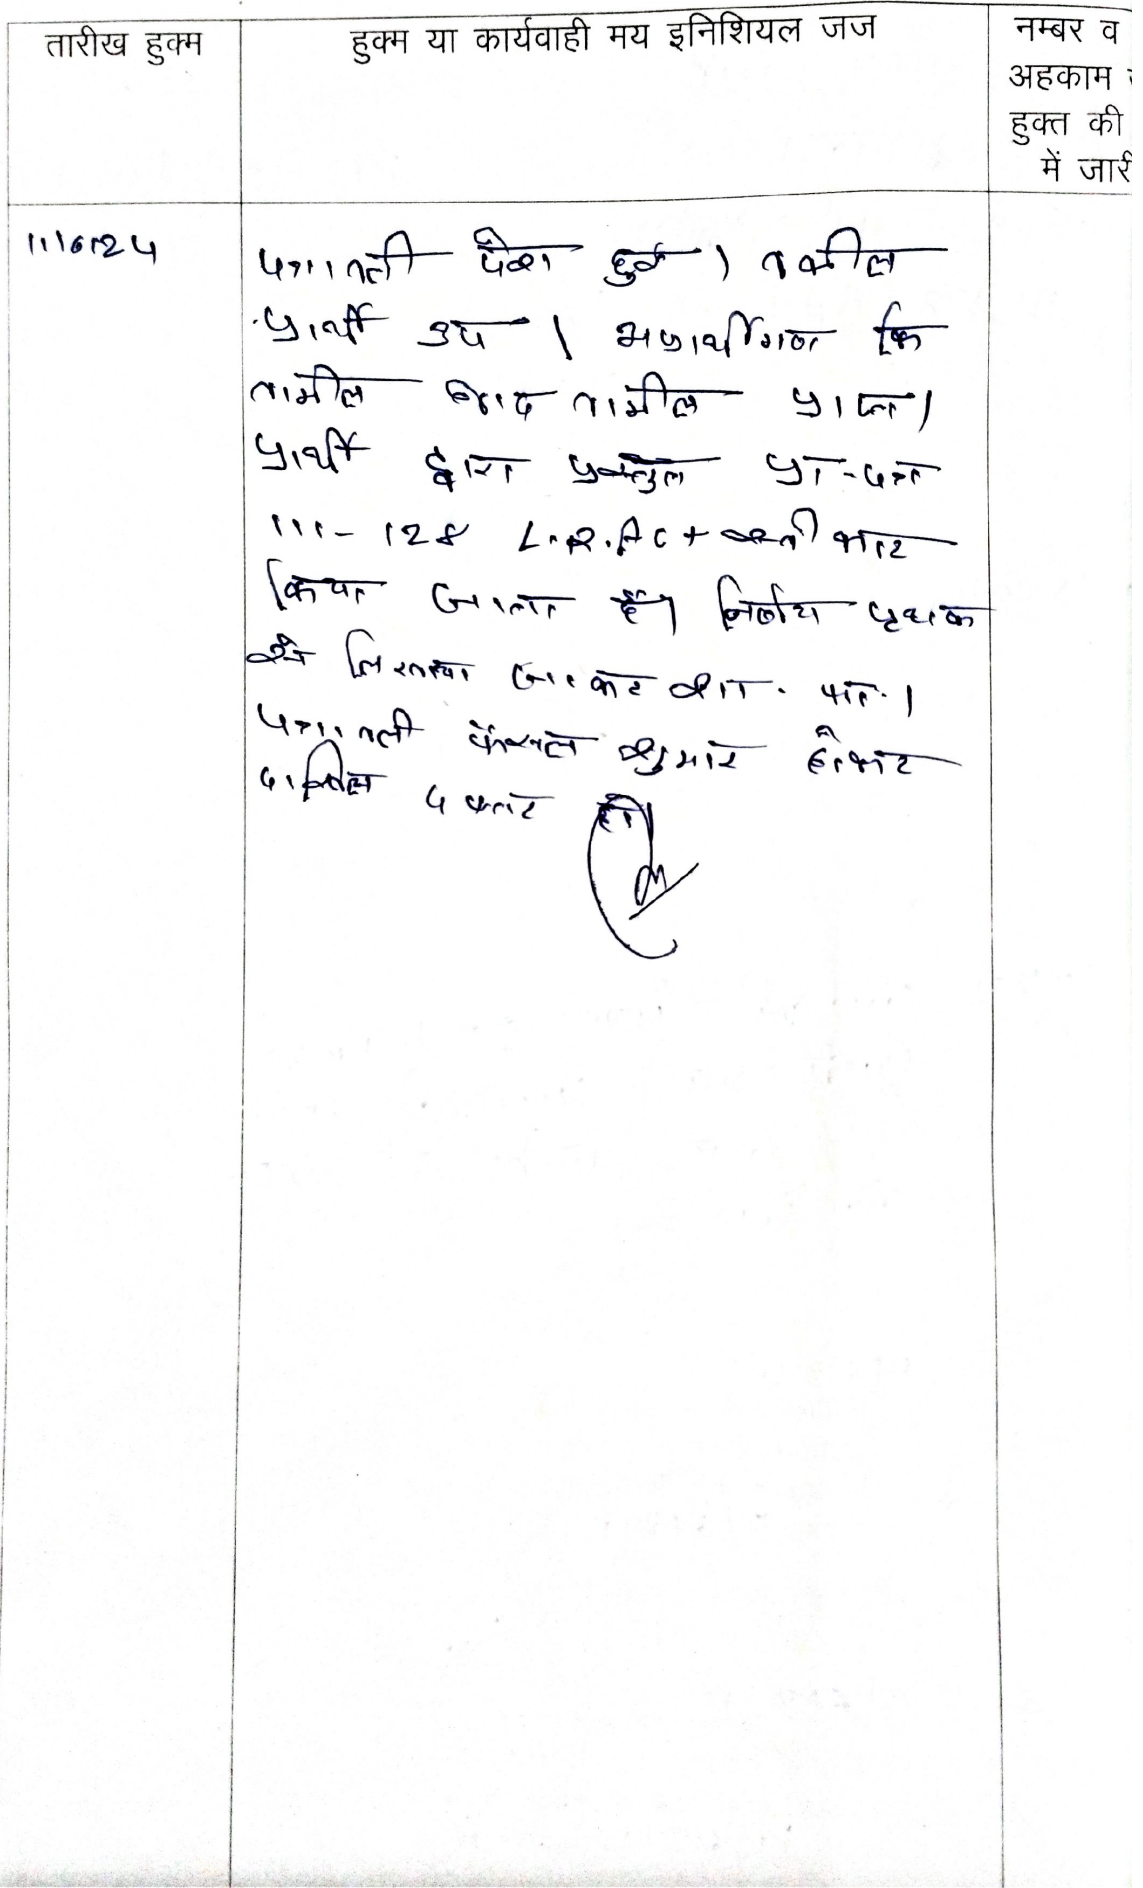 तारीख हुक्म
हुक्म या कार्यवाही मय इनिशियल जज
नम्बर व
अहकाम
हुक्त की
में जारी
11/6/24
पत्रावली पेश हुई। वकील
प्रार्थी उप। अप्रार्थीगण कि
तामील बाद तामील प्राप्त।
प्रार्थी द्वारा प्रस्तुत प्रा-पत्र
111-128 L.R.Act स्वीकार
किया जाता है। निर्णय पृथक
से लिखाया जाकर शा. पत्र.।
पत्रावली फैसल शुमार होकर
दाखिल दफ्तर हो।